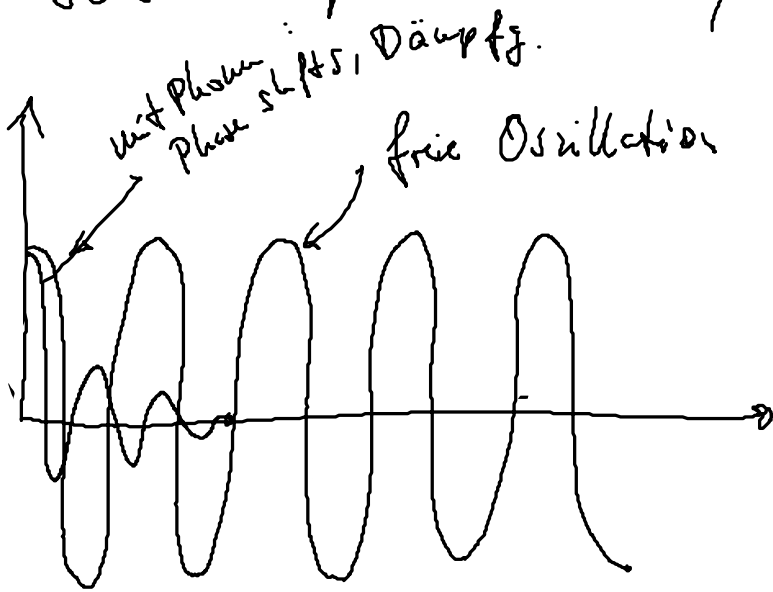 mit Phonon :
Phase shifts, Dämpfg.
freie Oszillation